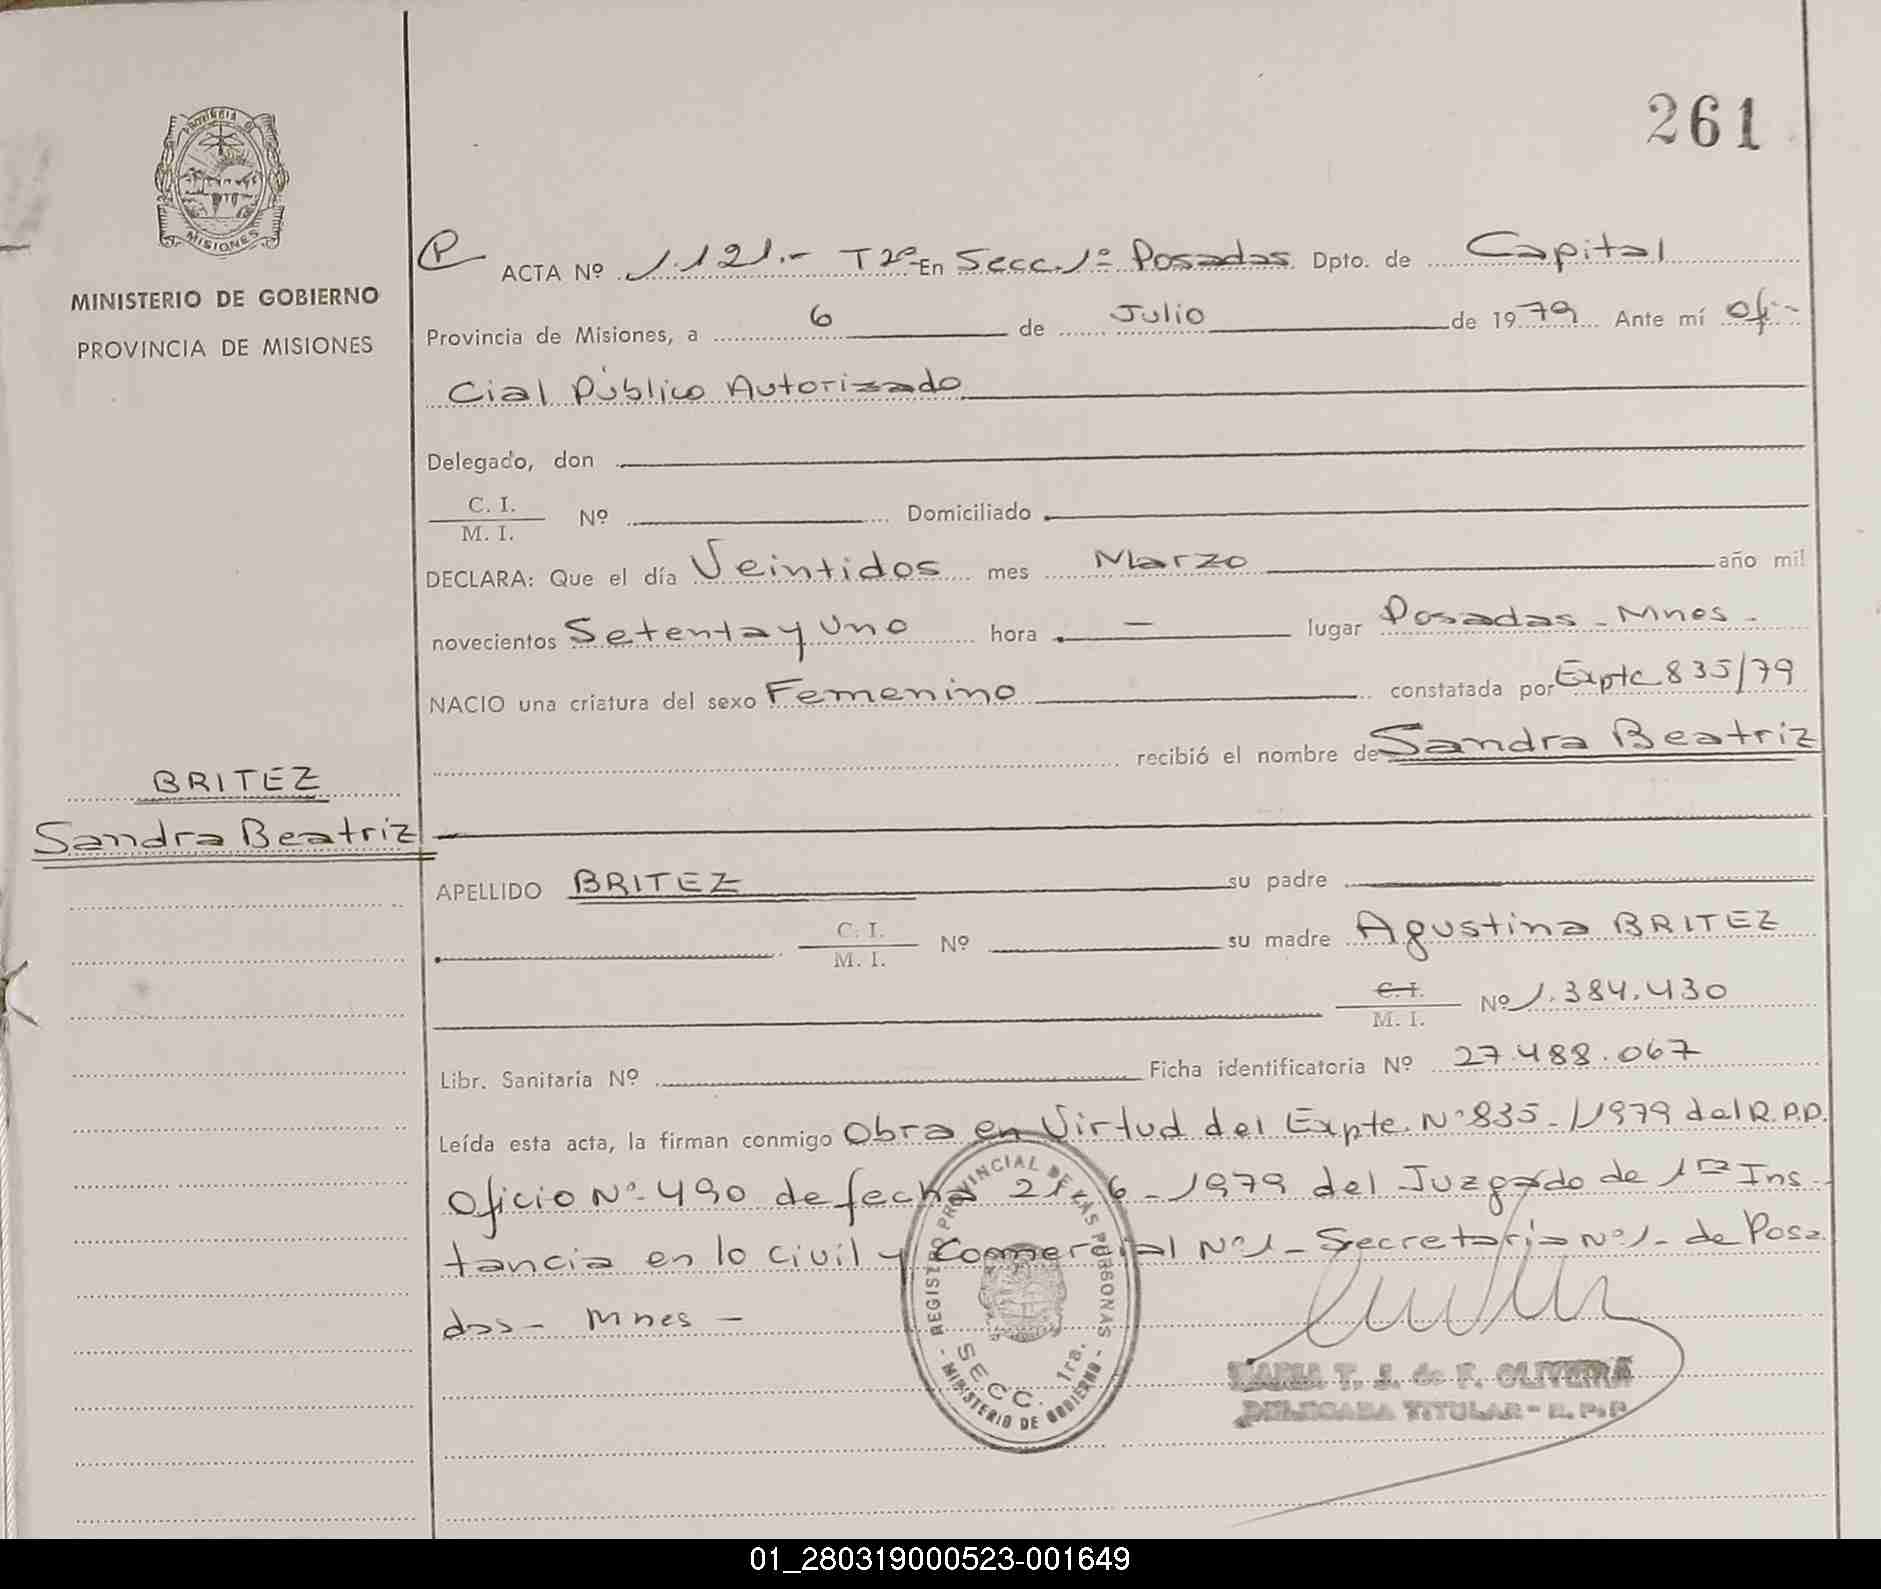 261
PROVINCIA DE
MISIONES
MINISTERIO DE GOBIERNO
PROVINCIA DE MISIONES
P ACTA Nº 1.121.- T2º En Secc. 1º Posadas Dpto. de Capital
Provincia de Misiones, a 6 de Julio de 1979 Ante mí Ofi-
cial Público Autorizado
Delegado, don
C. I.
M. I. Nº Domiciliado
DECLARA: Que el día Veintidos mes Marzo año mil
novecientos Setenta y Uno hora - lugar Posadas - Mnes -
NACIO una criatura del sexo Femenino constatada por Expte 835/79
recibió el nombre de Sandra Beatriz
BRITEZ
Sandra Beatriz
APELLIDO BRITEZ su padre
C. I.
M. I. Nº su madre Agustina BRITEZ
C. I.
M. I. Nº 1.384.430
Libr. Sanitaria Nº Ficha identificatoria Nº 27.488.067
Leída esta acta, la firman conmigo Obra en Virtud del Expte. Nº 835-/1979 del R.P.P.
Oficio Nº 490 de fecha 21-6-1979 del Juzgado de 1ra Ins-
tancia en lo Civil y Commercial Nº1- Secretaria Nº1- de Posa
das- Mnes -
REGISTRO PROVINCIAL DE LAS PERSONAS
SECC. 1ra.
- MINISTERIO DE GOBIERNO -
MARIA T. J. de F. OLIVEIRA
DELEGADA TITULAR - R. P. P
01_280319000523-001649